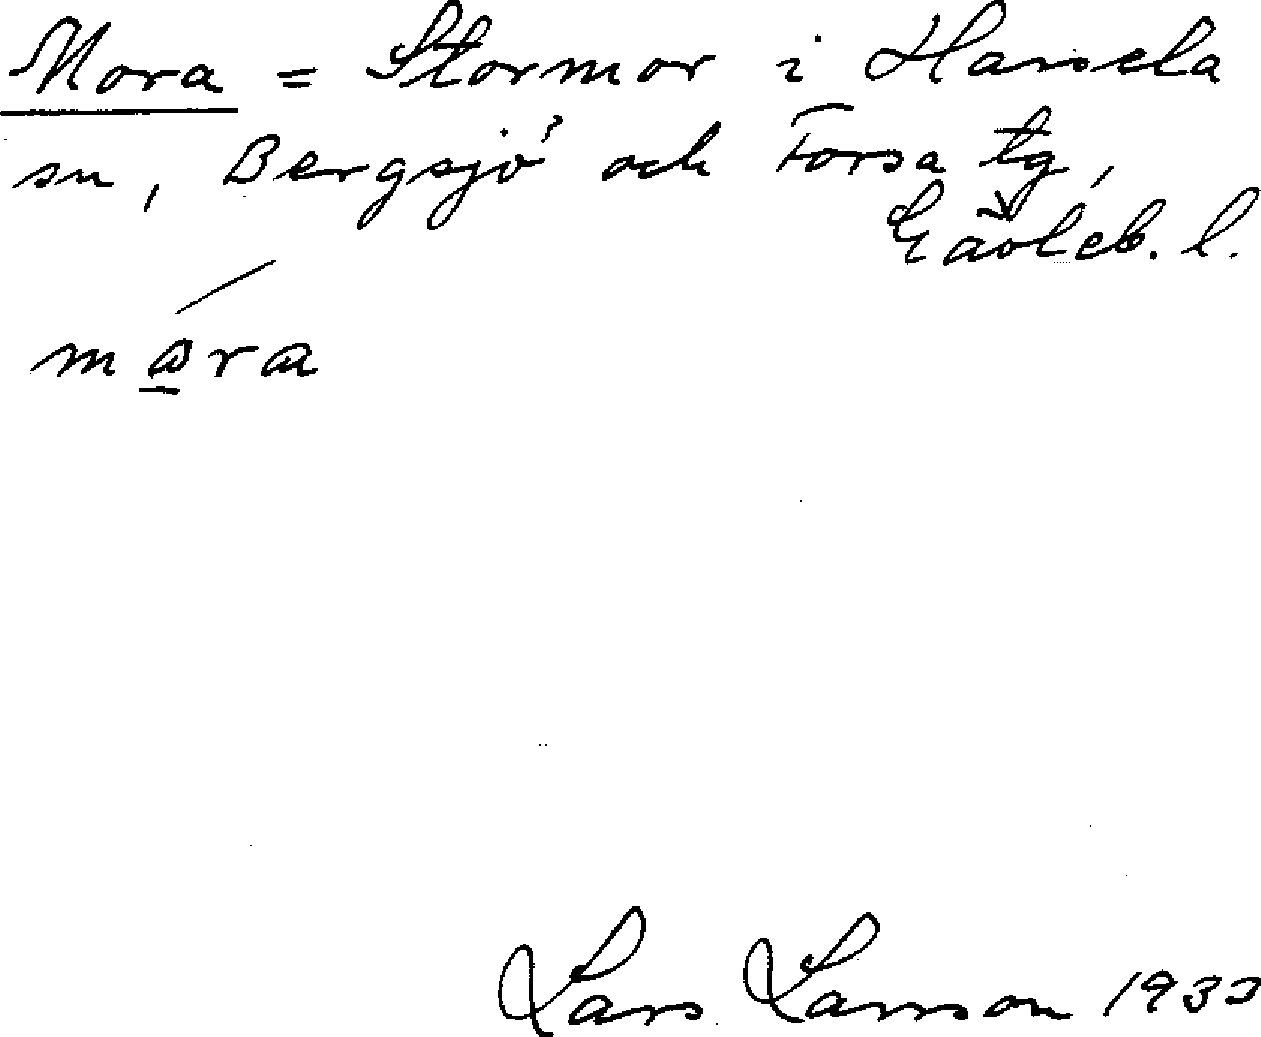 Mora = Stormor i Hassela
sn, Bergsjö och Forsa tg,
Gävleb. l.
Lars Larsson 1933